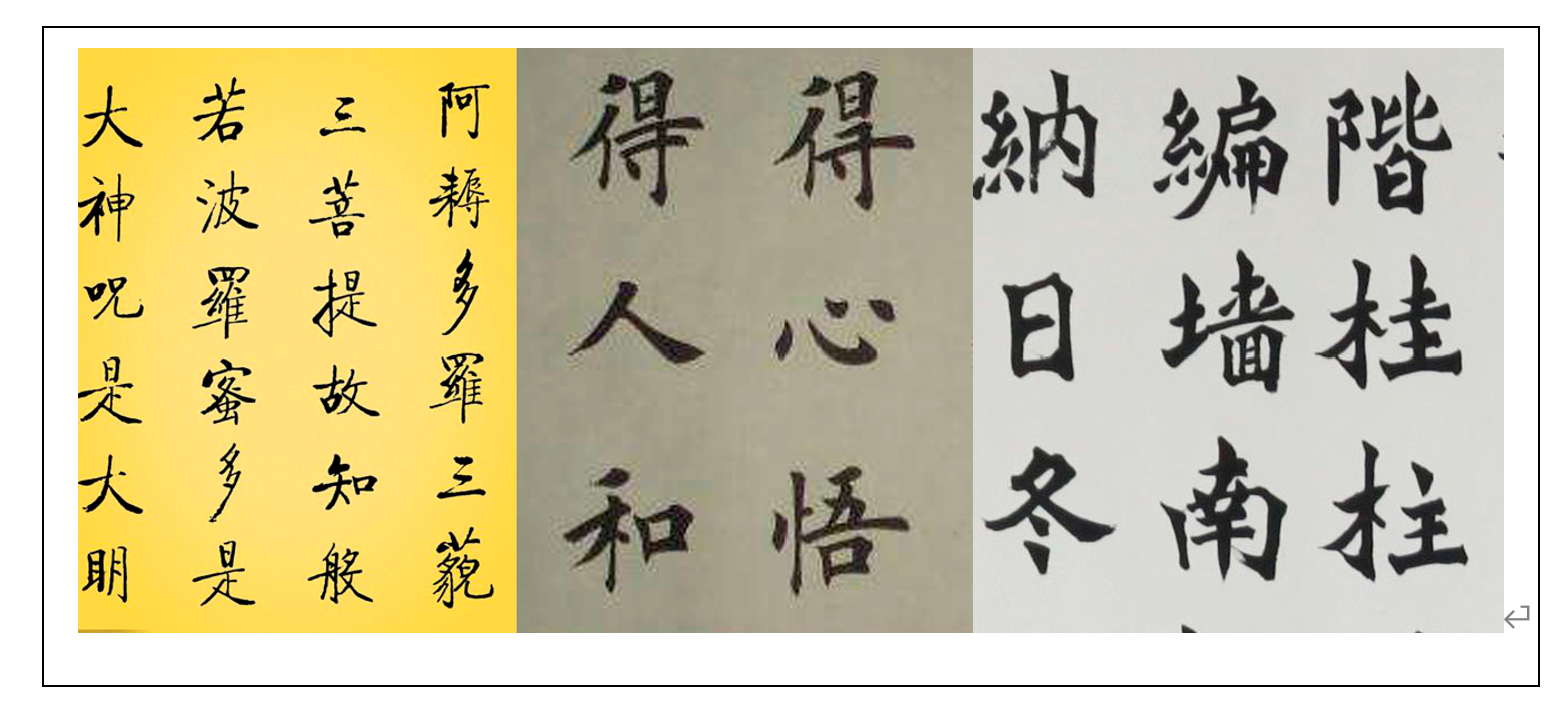 阿耨多羅三藐
三菩提故知般
若波羅蜜多是
大神呪是大明
得心悟
得人和
階桂柱
編墙南
納日冬